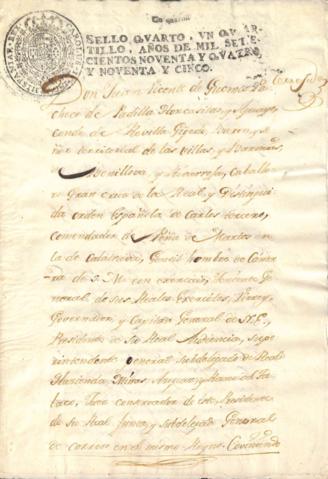 SELLO QVARTO, VN QVAR-
TILLO, AÑOS DE MIL SETE-
CIENTOS NOVENTA Y QVATRO,
Y NOVENTA Y CINCO.
Don Juan Vicente de Guemes Pa-
checo de Padilla Horcasitas, y Aguayo,
conde de Revilla Gigedo, Baron, y Se-
ñor territorial de las villas, y Baronias
de Benillova, y Rivarroja, Caballe-
ro Gran cruz de la Real, y Distingui-
da orden Española de Carlos tercero,
comendador de Peña de Martos en
la de Calatrava, Gentil hombre de Cama-
ra de S. M. con exercicio, Teniente
General de sus Reales Exercitos, Virrey,
Governador y Capitan General de N. E.,
Presidente de su Real Audiencia, Super-
intendente General Subdelegado de Real
Hacienda, Minas, Azogues, y Ramo del Ta-
baco, Juez conservador de este, Presidente
de su Real Junta, y Subdelegado General
de Correos en el mismo Reyno. Concediendo